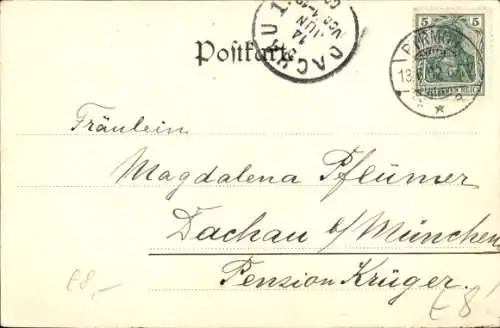 Postkarte
DACHAU 1
14 JUN
5 5
Fräulein
Magdalena Pflümer
Dachau b/ München
Pension Krüger.
€8,-
€8